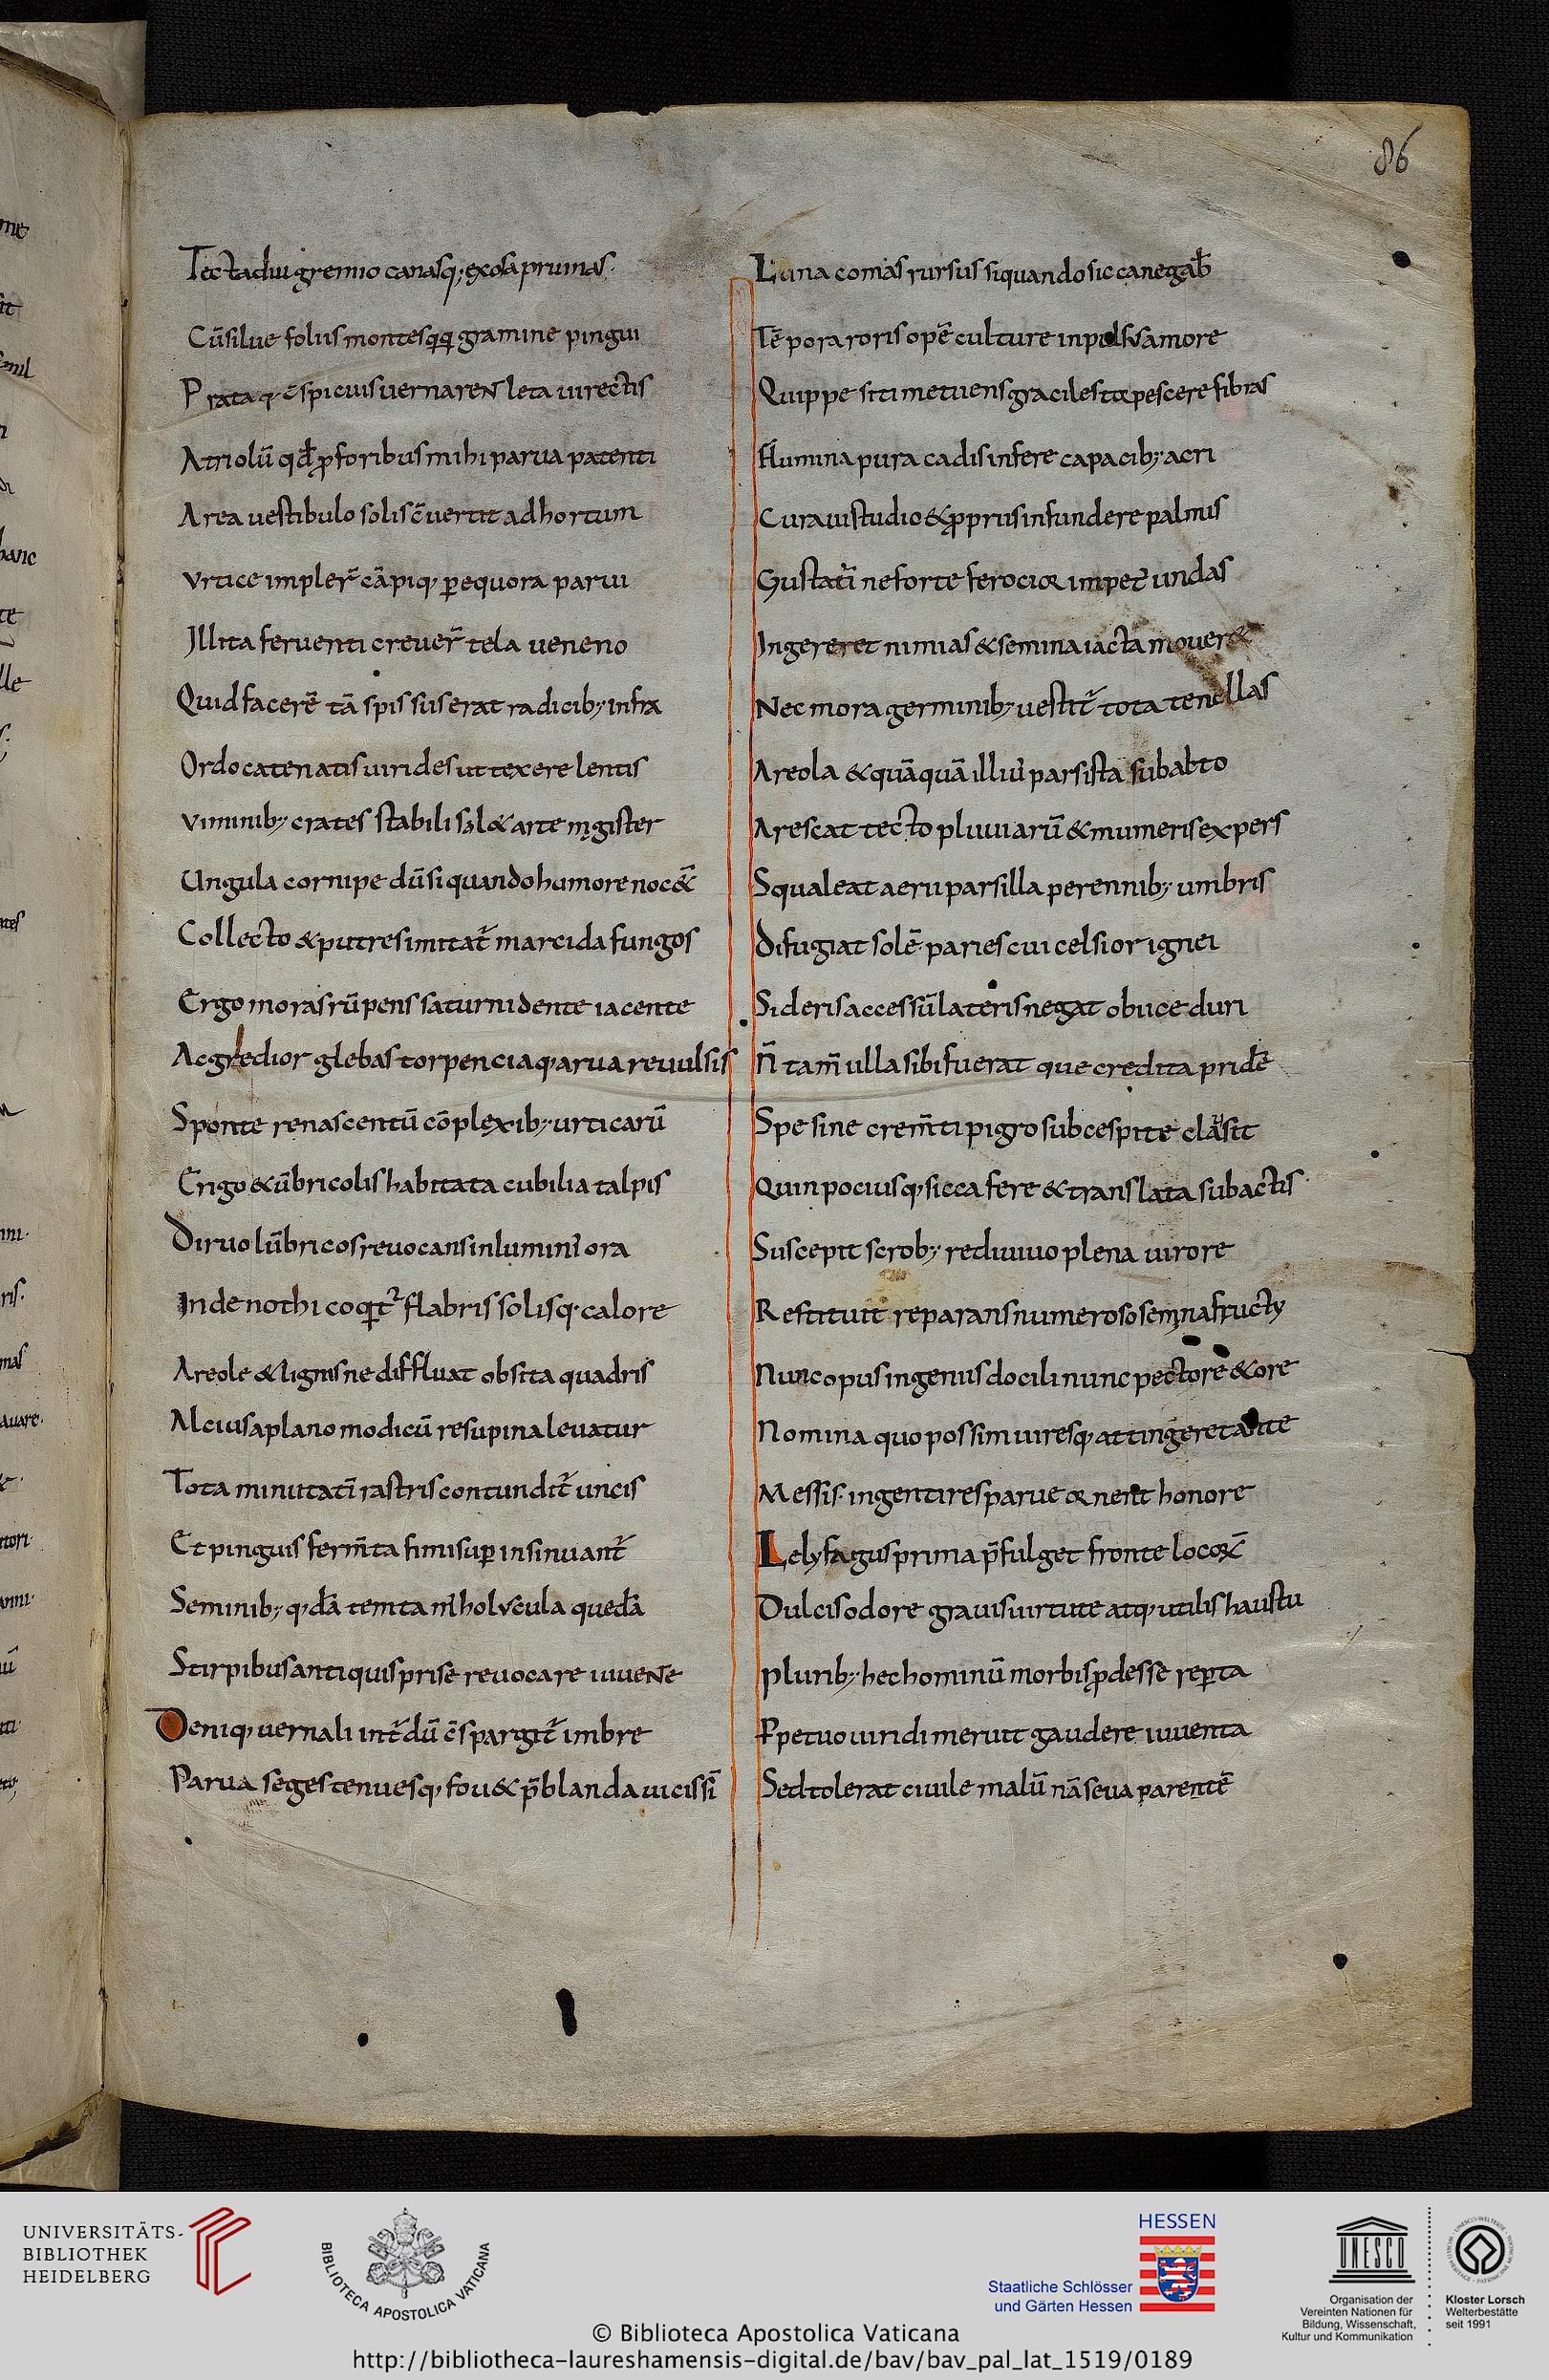 86
Tecta diu gremio canasq; exosa pruinas.
Cū silue foliis montes qq gramine pingui
Prata q, c̄spicuis uernarent leta uirectis
Atriolū qđ p foribus mihi parua patenti
Area uestibulo solis c̄uertit ad hortum
Vrtice impler̄ cāpiq, p equora parui
Illita feruenti creuer̄ tela ueneno
Quid facerē tā spissus erat radicib; infra
Ordo catenatis uirides ut texere lentis
Viminib; crates stabili sol& arte mgister
Ungula cornipedū si quando humore noc&
Collecto & putres imitat̄ marcida fungos
Ergo moras rūpens saturni dente iacente
Acgredior glebas torpenciaq, arua reuulsis
Sponte renascentū cōplexib; urticarū
Erigo & ūbricolis habitata cubilia talpis
Diruo lūbricos reuocans in luminis ora
Inde nothi coqt̄ flabris solisq, calore
Areole & lignis ne diffluat obsita quadris
Alcius a plano modicū resupina leuatur
Tota minutatī rastris contundit̄ uncis
Et pinguis ferm̄ta fimi sup insinuant̄
Seminib; q,dā temtam̄ holvscula quedā
Stirpibus antiquis prise reuocare iuuente
Deniq, uernali int̄dū c̄spargit̄ imbre
Parua seges tenuesq, fou& p̄blanda uicissī
Luna comas rursus si quando sicca negab̄
Tēpora roris opē culture inpulsvs amore
Quippe siti metuens graciles torpescere fibras
Flumina pura cadis infere capacib; acri
Curaui studio & ppriis infundere palmis
Guttatī ne forte ferocior impet; undas
Ingereret nimias & semina iacta mouer&
Nec mora germinib; uestit̄ tota tenellas
Areola & quāquā illius pars ista sub abto
Arescat tecto pluuiarū & mumeris expers
Squaleat aerii pars illa perennib; umbris
Difugiat solē paries cui celsior ignei
Sideris accessū lateris negat obiice duri
n̄ tam̄ ulla sibi fuerat que credita pridē
Spe sine crem̄ti pigro sub cespite clausit
Quin pociusq, sicca fere & translata subactis
Suscepit scrob; rediuiuo plena uirore
Restituit reparans numeroso semina fructu
Nunc opus ingeniis docili nunc pectore & ore
Nomina quo possim uiresq, attingere tante
Messis. ingenti res parue ornent honore
Lelyfagus prima p̄fulget fronte locor̄
Dulcis odore grauis uirtute atq, utilis haustu
plurib; hec hominū morbis pdesse repta
Ppetuo uiridi meruit gaudere iuuenta
Sed tolerat ciuile malū nā seua parentē
UNIVERSITÄTS-
BIBLIOTHEK
HEIDELBERG
BIBLIOTECA APOSTOLICA VATICANA
HESSEN
Staatliche Schlösser
und Gärten Hessen
UNESCO
Organisation der
Vereinten Nationen für
Bildung, Wissenschaft,
Kultur und Kommunikation
Kloster Lorsch
Welterbestätte
seit 1991
© Biblioteca Apostolica Vaticana
http://bibliotheca-laureshamensis-digital.de/bav/bav_pal_lat_1519/0189